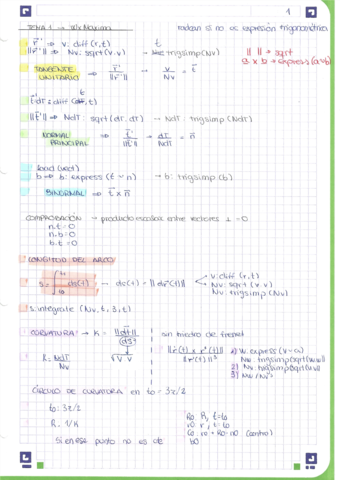 1
TEMA 1 → wx Maxima
radcan si no es expresión trigonométrica
r' ⇒ v: diff (r,t)
||r'|| ⇒ Nv: sqrt (v.v) → trigsimp(Nv)
|| || → sqrt
a x b → express(a~b)
TANGENTE UNITARIO ⇒ r'/||r'|| → v/Nv = t
t' dt: diff (t,t)
||t'|| ⇒ Ndt: sqrt (dt.dt) → Ndt: trigsimp (Ndt)
NORMAL PRINCIPAL ⇒ t'/||t'|| → dt/Ndt = n
load (vect)
b ⇒ b: express (t ~ n) → b: trigsimp (b)
BINORMAL ⇒ t x n
COMPROBACIÓN → producto escalar entre vectores ⊥ = 0
n.t = 0
n.b = 0
b.t = 0
LONGITUD DEL ARCO
S = ∫ ds(t) → ds(t) = ||dr'(t)||
v: diff (r,t)
Nv: sqrt (v.v)
Nv: trigsimp (Nv)
S: integrate (Nv, t, 3, t)
CURVATURA → K = ||dt||/ds
sin triedro de frenet
K: Ndt/Nv
||r'(t) x r''(t)||/||r'(t)||³
1) w: express (v~a)
2)
3) Nw/Nv³
CÍRCULO DE CURVATURA en t0 = 3π/2
t0: 3π/2
R: 1/K
R0: R, t=t0
r0: r, t=t0
C0: r0 + R0·n0 (centro)
b0
Si en ese punto no es de